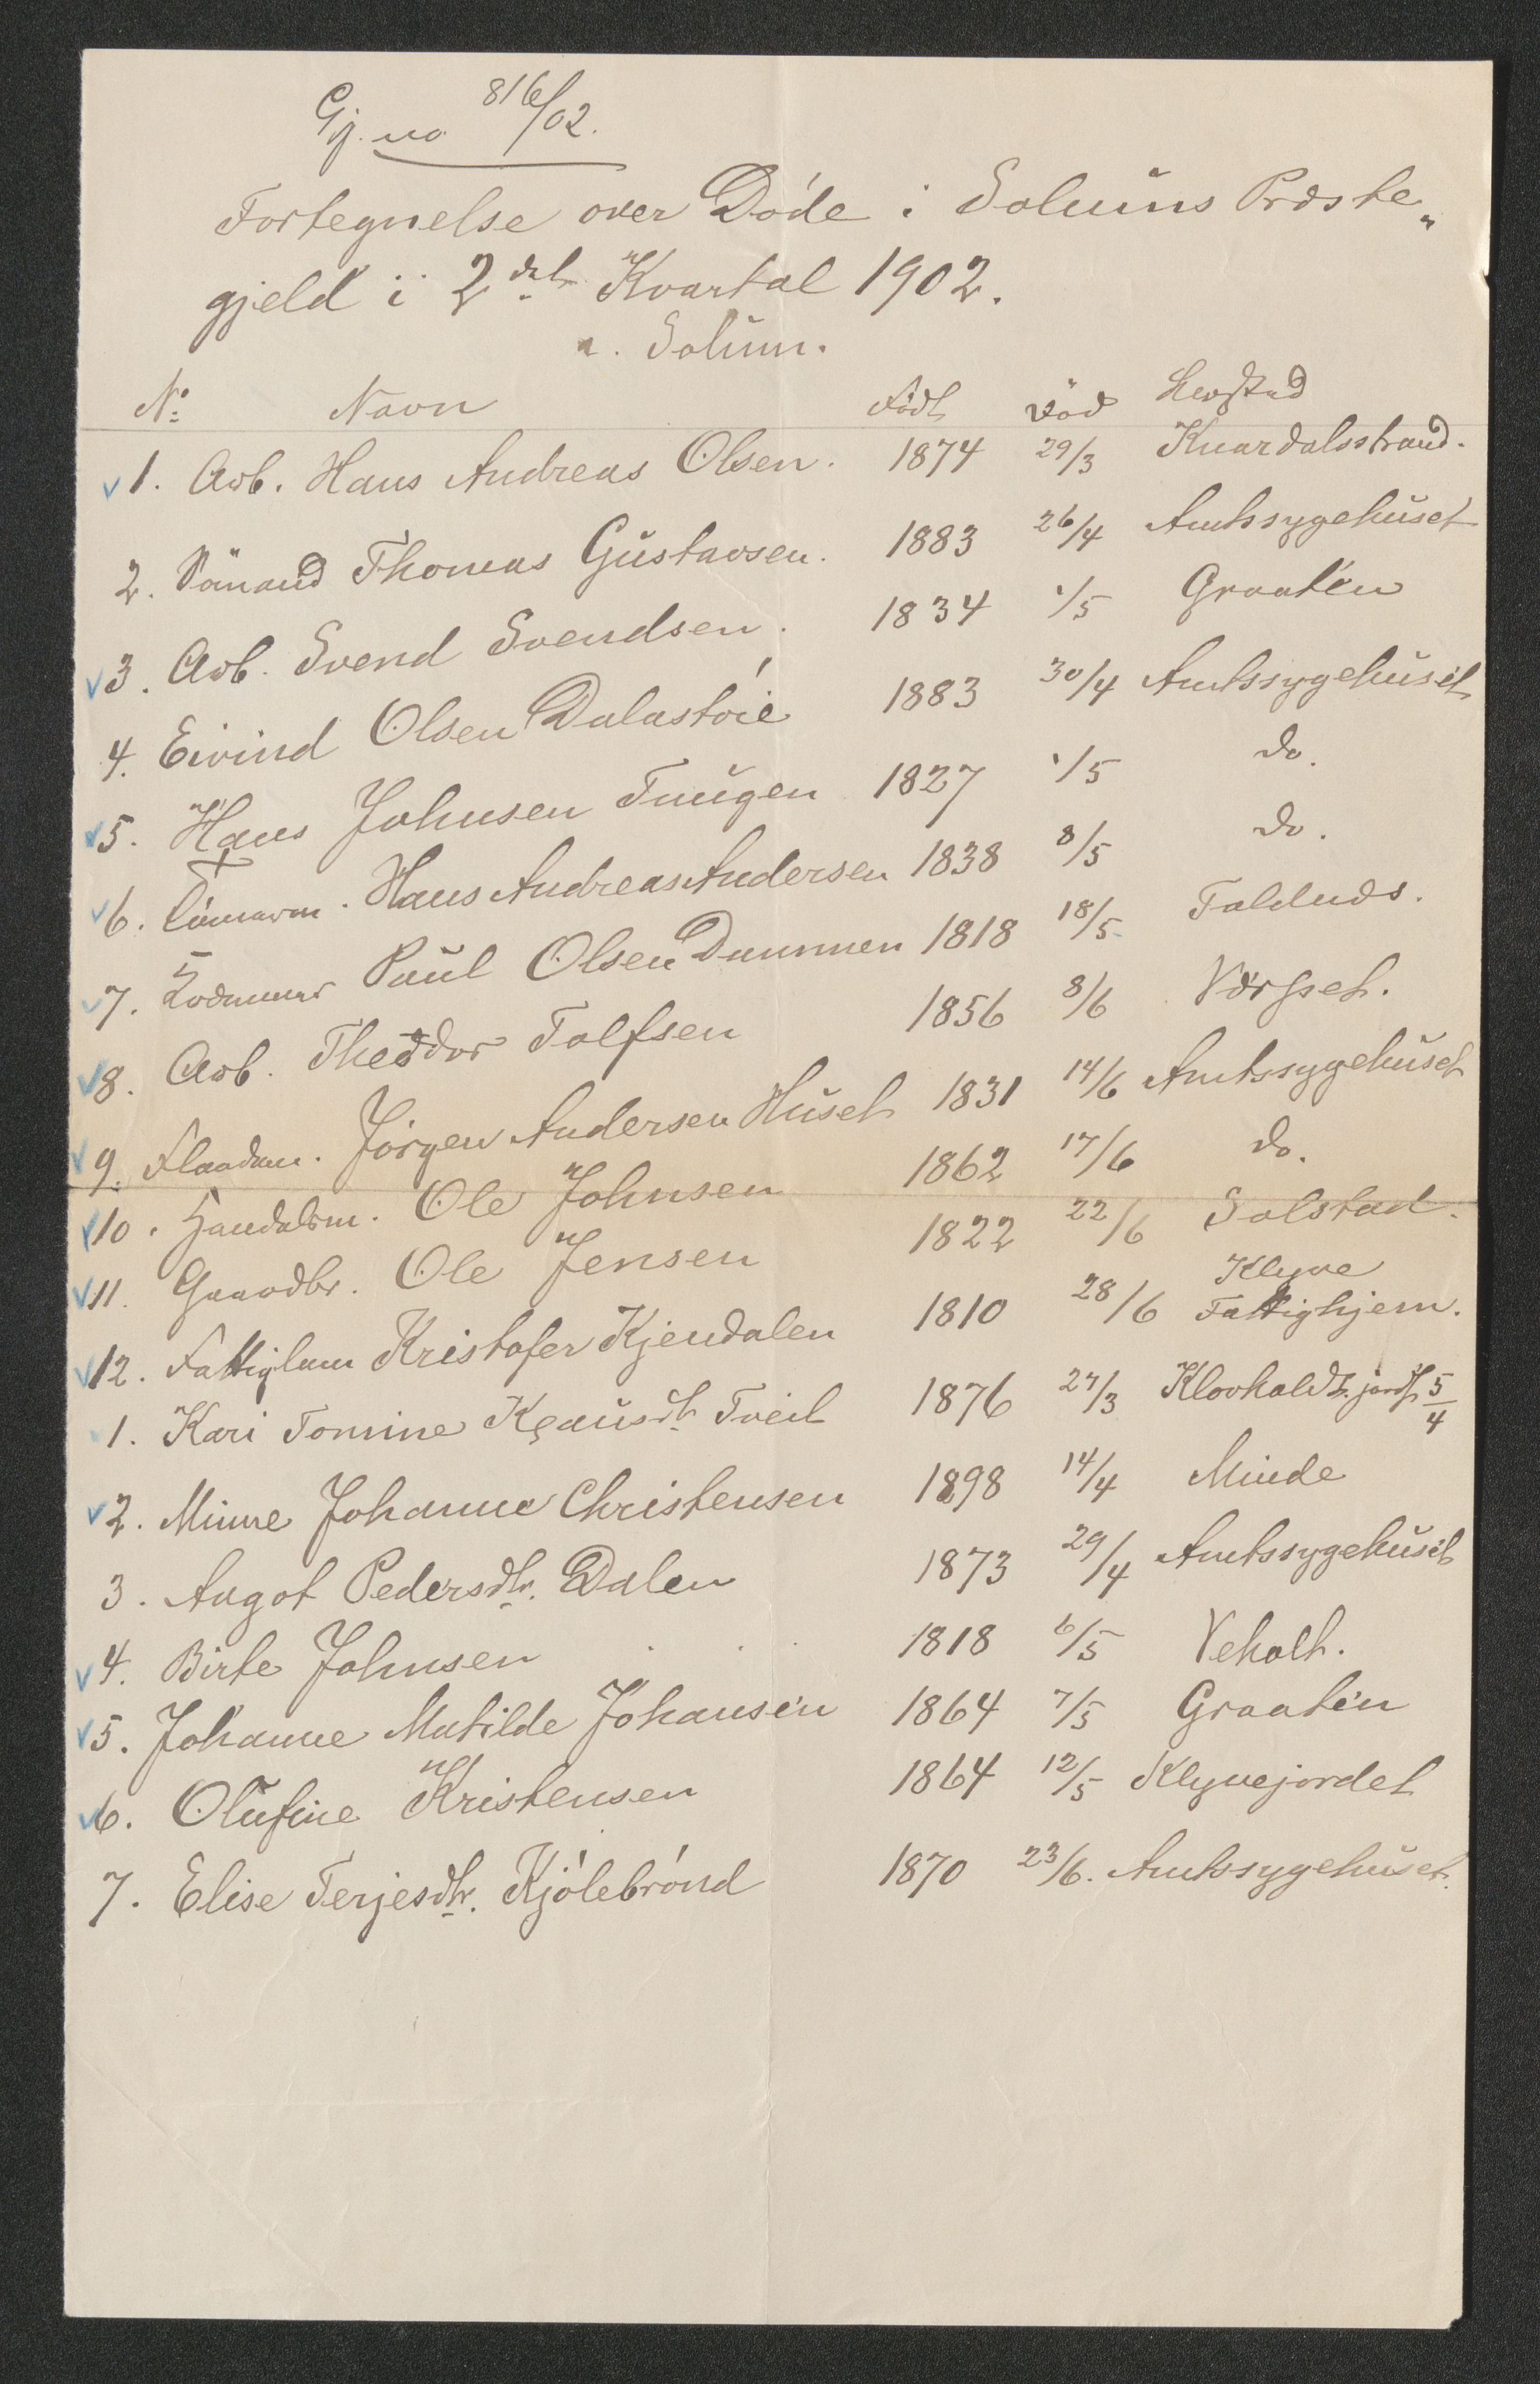 Gj. no 816/02.
Fortegnelse over Døde i Solums Præste„
gjeld i 2det Kvartal 1902.
a. Solum.
No Navn Født Død Levested
1. Arb. Hans Andreas Olsen. 1874 29/3 Knardalsstrand.
2. Sömand Thomas Gustavsen. 1883 26/4 Amtssygehuset
3. Arb. Svend Svendsen. 1834 1/5 Graaten
4. Eivind Olsen Dalastöie 1883 30/4 Amtssygehuset
5. Hans Johnsen Tnugen 1827 1/5 do.
6. Tömmerm. Hans Andreas Andersen 1838 8/5 do.
7. Lodsmand Paul Olsen Dammen 1818 18/5
8. Arb. Theodor Tolfsen 1856 8/6
9. Jörgen Andersen Huset 1831 14/6 Amtssygehuset
10. Handelsm. Ole Johnsen 1862 17/6 do.
11. Gaardbr. Ole Jensen 1822 22/6 Solstad.
12. Fattiglem Kristofer Kjendalen 1810 28/6 Klyve Fattighjem.
1. Kari Tomine Klausdtr Tveit 1876 27/3 Klovholdt. jordf. 5/4
2. Minne Johanne Christensen 1898 14/4 Minde
3. Aagot Pedersdtr. Dalen 1873 29/4 Amtssygehuset
4. Birte Johnsen 1818 6/5 Veholt.
5. Johanne Matilde Johansen 1864 7/5 Graaten
6. Olufine Kristensen 1864 12/5 Klyvejordet
7. Elise Terjesdtr. Kjölebrönd 1870 23/6. Amtssygehuset.